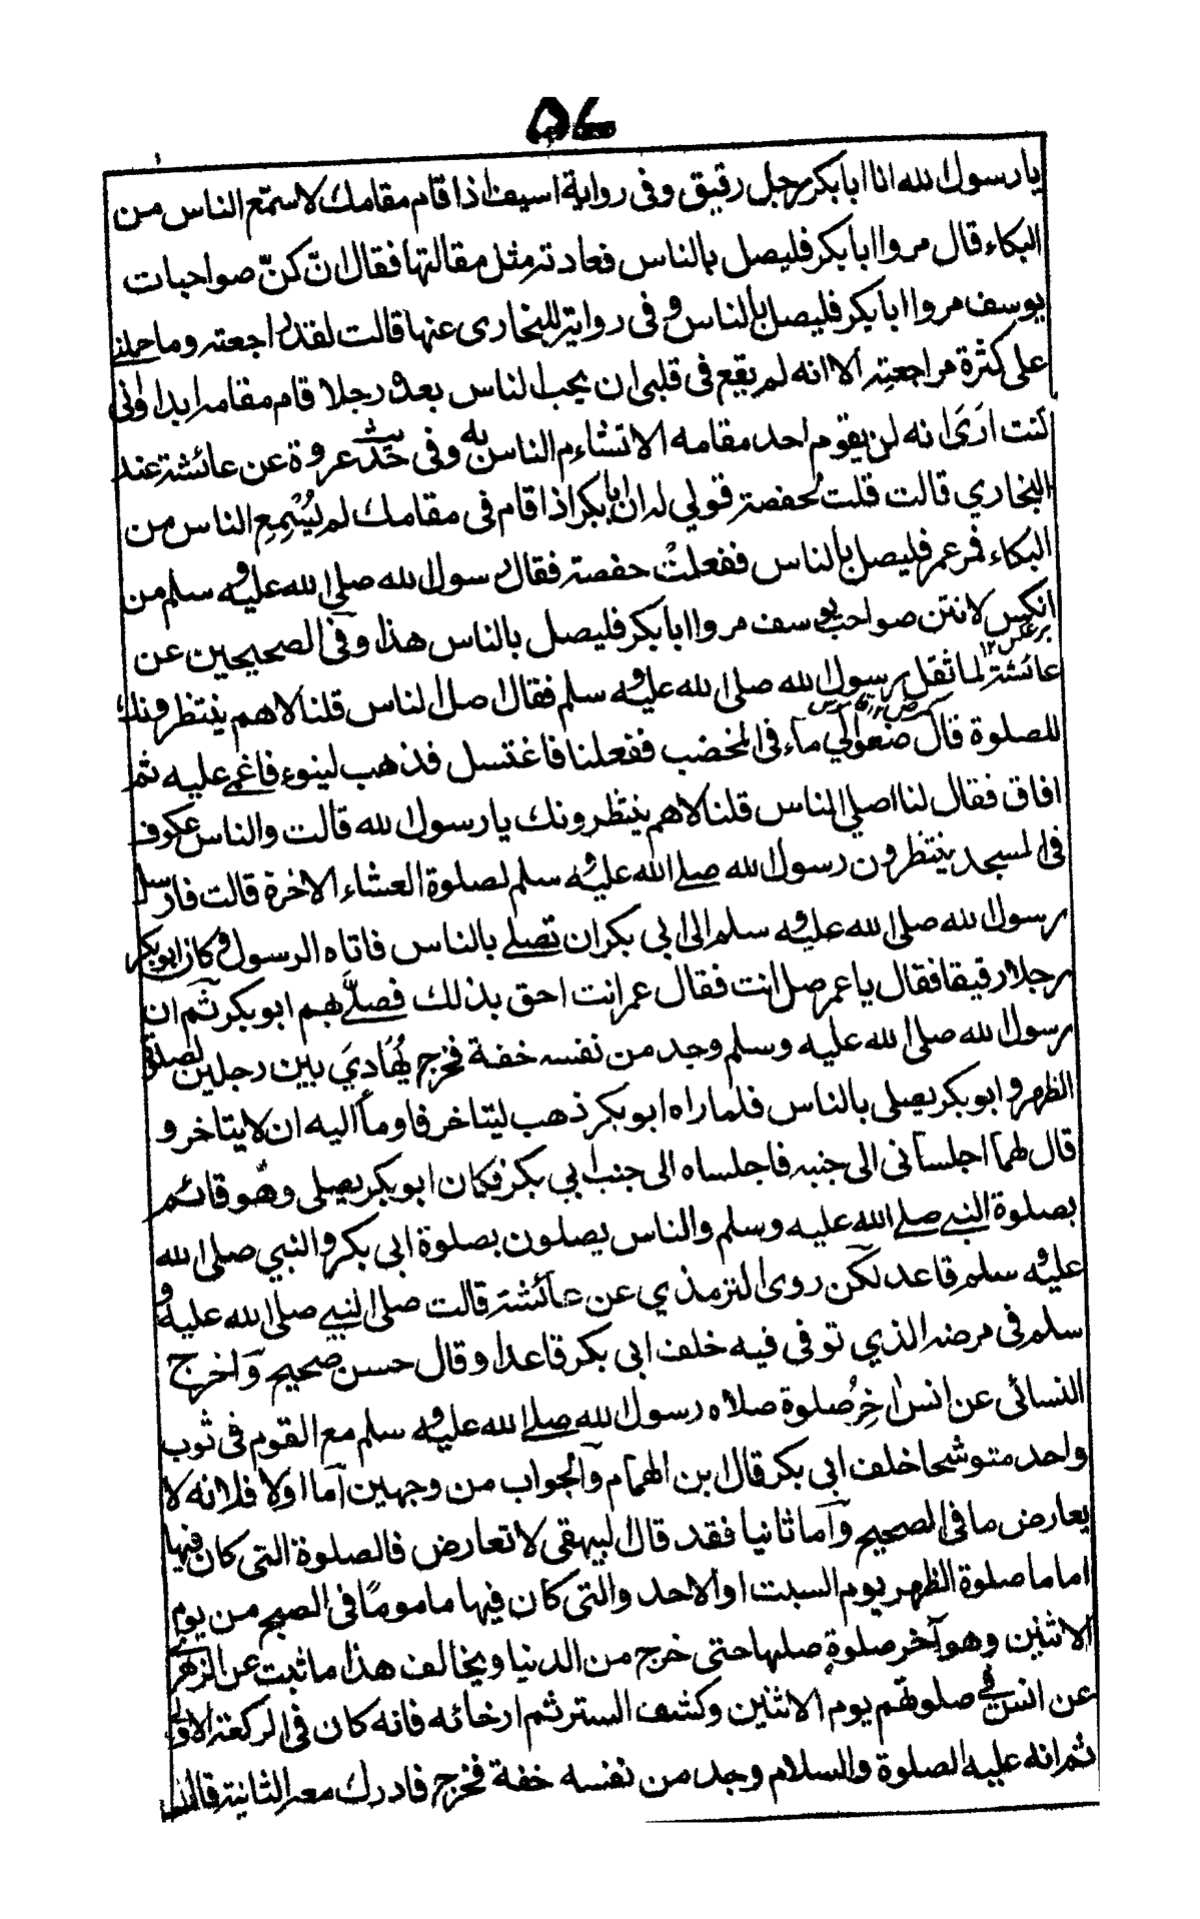 ۵۷
يا رسول الله انا ابا بكر رجل رقيق وفى رواية اسيف اذا قام مقامك لا ستمع الناس من
البكاء قال مروا ابا بكر فليصل بالناس فعادته مثل مقالتها فقال انّ كنّ صواحبات
يوسف مروا ابا بكر فليصل بالناس و فى رواية للبخارى عنها قالت لقد راجعته وما حملنے
على كثرة مراجعته الا انه لم يقع فى قلبى ان يحب الناس بعده رجلا قام مقامه ابدا وانى
كنت ارَىٰ انه لن يقوم احد مقامه الا تشاءم الناس به وفى حديث عروة عن عائشة عند
البخاري قالت قلت لحفصة قولي له ان ابا بكر اذا قام فى مقامك لم يُسْمِعِ الناس من
البكاء فمر عمر فليصل بالناس ففعلتْ حفصة فقال رسول الله صلى الله عليه و سلم من
انكن لانتن صواحب يوسف مروا ابا بكر فليصل بالناس هذا وفى الصحيحين عن
عائشة لما ثقل رسول الله صلى الله عليه و سلم فقال اصل الناس قلنا لا هم ينتظرونك
للصلوة قال ضعوا لي ماء فى المخضب ففعلنا فاغتسل فذهب لينوء فاغمى عليه ثم
افاق فقال لنا اصلى الناس قلنا لا هم ينتظرونك يا رسول الله قالت والناس عكوف
فى المسجد ينتظرون رسول الله صلے الله عليه و سلم لصلوة العشاء الاخرة قالت فارسل
رسول الله صلى الله عليه و سلم الى ابي بكر ان تصلے بالناس فاتاه الرسول و كان ابو بكر
رجلا رقيقا فقال يا عمر صل انت فقال عمر انت احق بذلك فصلّے بهم ابو بكر ثم ان
رسول الله صلى الله عليه وسلم وجد من نفسه خفة فخرج يُهَاديَ بين رجلين لصلوة
الظهر و ابو بكر يصلى بالناس فلما راه ابو بكر ذهب ليتاخر فاومأ اليه ان لا يتاخر و
قال لهما اجلسانى الى جنبه فاجلساه الى جنب ابي بكر فكان ابو بكر يصلى وهو قائم
بصلوة النبے صلے الله عليه وسلم والناس يصلون بصلوة ابى بكر والنبي صلى الله
عليه و سلم قاعد لكن روى الترمذي عن عائشة قالت صلى النبے صلى الله عليه و
سلم فى مرضه الذي توفى فيه خلف ابى بكر قاعدا وقال حسن صحيح واخرج
النسائى عن انس اٰخِرُ صلوة صلاه رسول الله صلے الله عليه و سلم مع القوم فى ثوب
واحد متوشحا خلف ابى بكر قال ابن الهمام والجواب من وجهين اما اولا فلانه لا
يعارض ما فى الصحيح واما ثانيا فقد قال البيهقى لا تعارض فالصلوة التى كان فيها
اماما صلوة الظهر يوم السبت او الاحد والتى كان فيها مامومًا فى الصبح من يوم
الاثنين وهو آخر صلوة صليها حتى خرج من الدنيا ويخالف هذا ما ثبت عن الزهرے
عن انس فے صلوتهم يوم الاثنين وكشف الستر ثم ارخائه فانه كان فى الركعة الاولى
ثم انه عليه الصلوة والسلام وجد من نفسه خفة فخرج فادرك معه الثانية